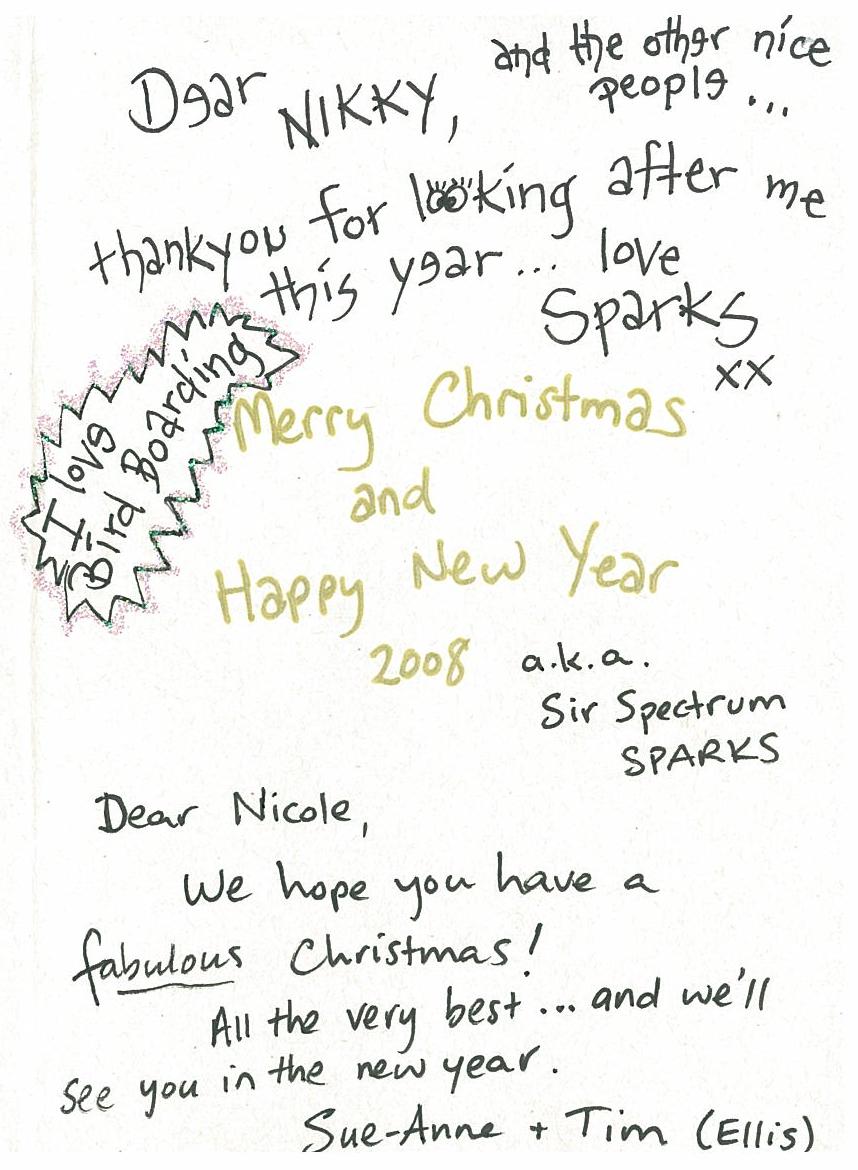 Dear NIKKY,
and the other nice
people ...
thankyou for looking after me
this year ... love
Sparks
xx
I love
Bird Boarding
Merry Christmas
and
Happy New Year
2008
a.k.a.
Sir Spectrum
SPARKS
Dear Nicole,
We hope you have a
fabulous Christmas!
All the very best ... and we'll
see you in the new year.
Sue-Anne + Tim (Ellis)